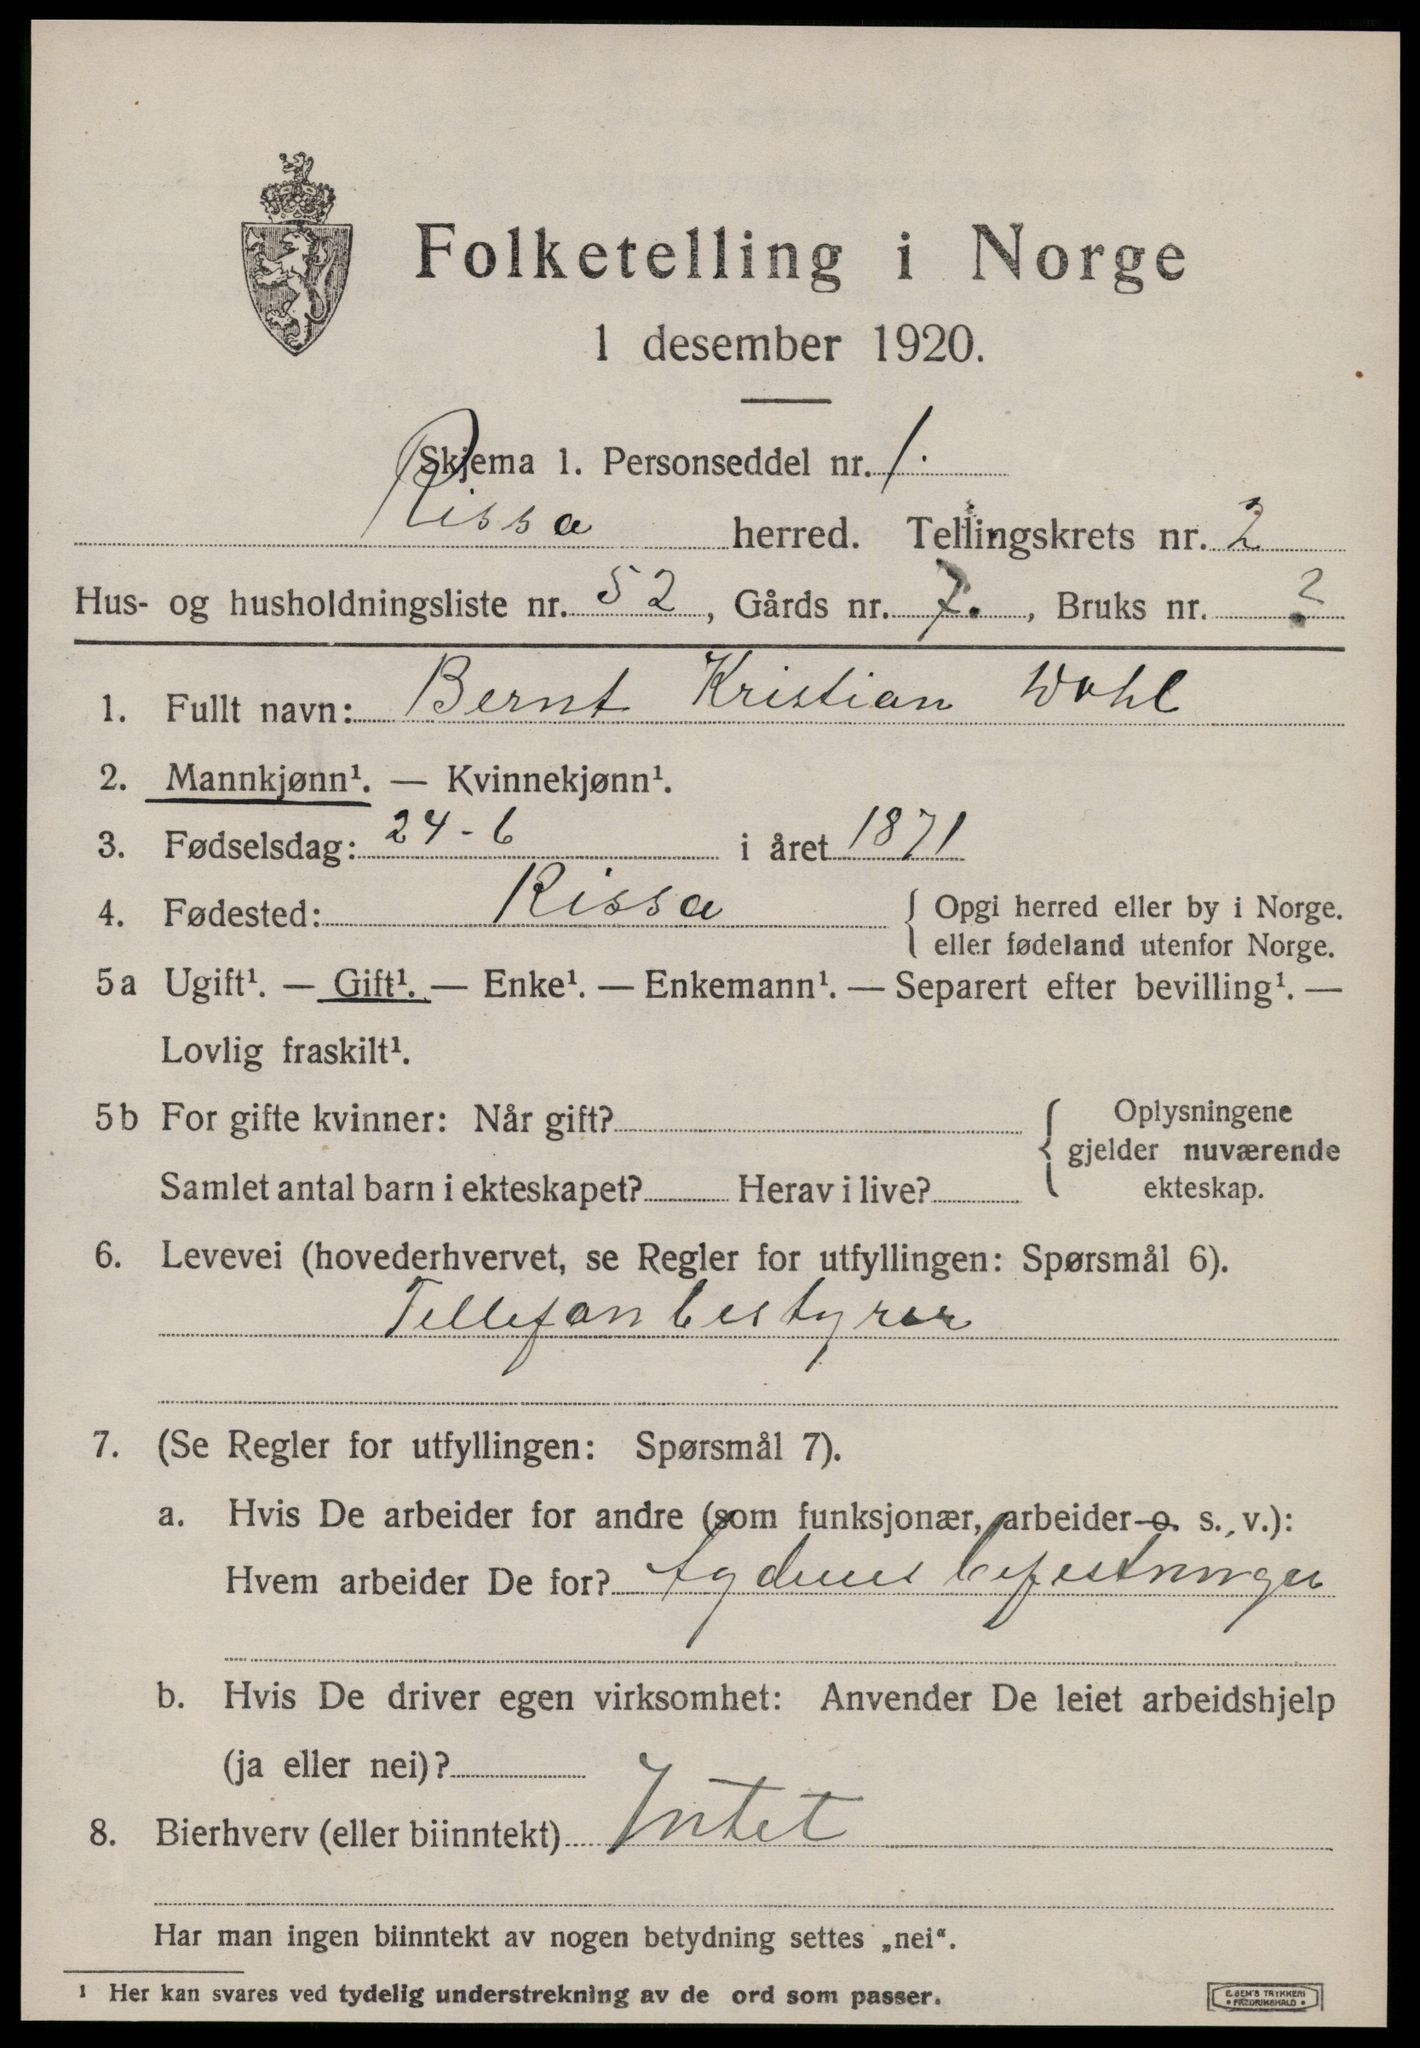 Folketelling i Norge
1 desember 1920.
Skjema 1. Personseddel nr. 1.
Rissa herred. Tellingskrets nr. 2
Hus- og husholdningsliste nr. 52, Gårds nr. 7., Bruks nr. ?
1. Fullt navn: Bernt Kristian Wohl
2. Mannkjønn¹. — Kvinnekjønn¹.
3. Fødselsdag: 24-6 i året 1871
4. Fødested: Rissa { Opgi herred eller by i Norge.
eller fødeland utenfor Norge.
5a Ugift¹. — Gift¹. — Enke¹. — Enkemann¹. — Separert efter bevilling¹. —
Lovlig fraskilt¹.
5b For gifte kvinner: Når gift? { Oplysningene
gjelder nuværende
Samlet antal barn i ekteskapet? Herav i live? ekteskap.
6. Levevei (hovederhvervet, se Regler for utfyllingen: Spørsmål 6).
Tellefonbestyrer
7. (Se Regler for utfyllingen: Spørsmål 7).
a. Hvis De arbeider for andre (som funksjonær, arbeider o. s. v.):
Hvem arbeider De for? Agdenes befestninger
b. Hvis De driver egen virksomhet: Anvender De leiet arbeidshjelp
(ja eller nei)?
8. Bierhverv (eller biinntekt) Intet
Har man ingen biinntekt av nogen betydning settes „nei“.
¹ Her kan svares ved tydelig understrekning av de ord som passer.
E. SEM'S TRYKKERI
• FREDRIKSHALD •